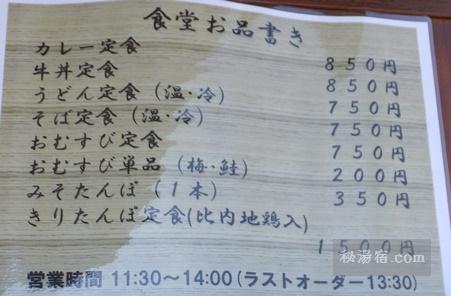 食堂お品書き
カレー定食 850円
牛丼定食 850円
うどん定食(温・冷) 750円
そば定食(温・冷) 750円
おむすび定食 750円
おむすび単品(梅・鮭) 200円
みそたんぽ(1本) 350円
きりたんぽ定食(比内地鶏入)
1500円
営業時間 11:30～14:00(ラストオーダー13:30)
秘湯宿.com